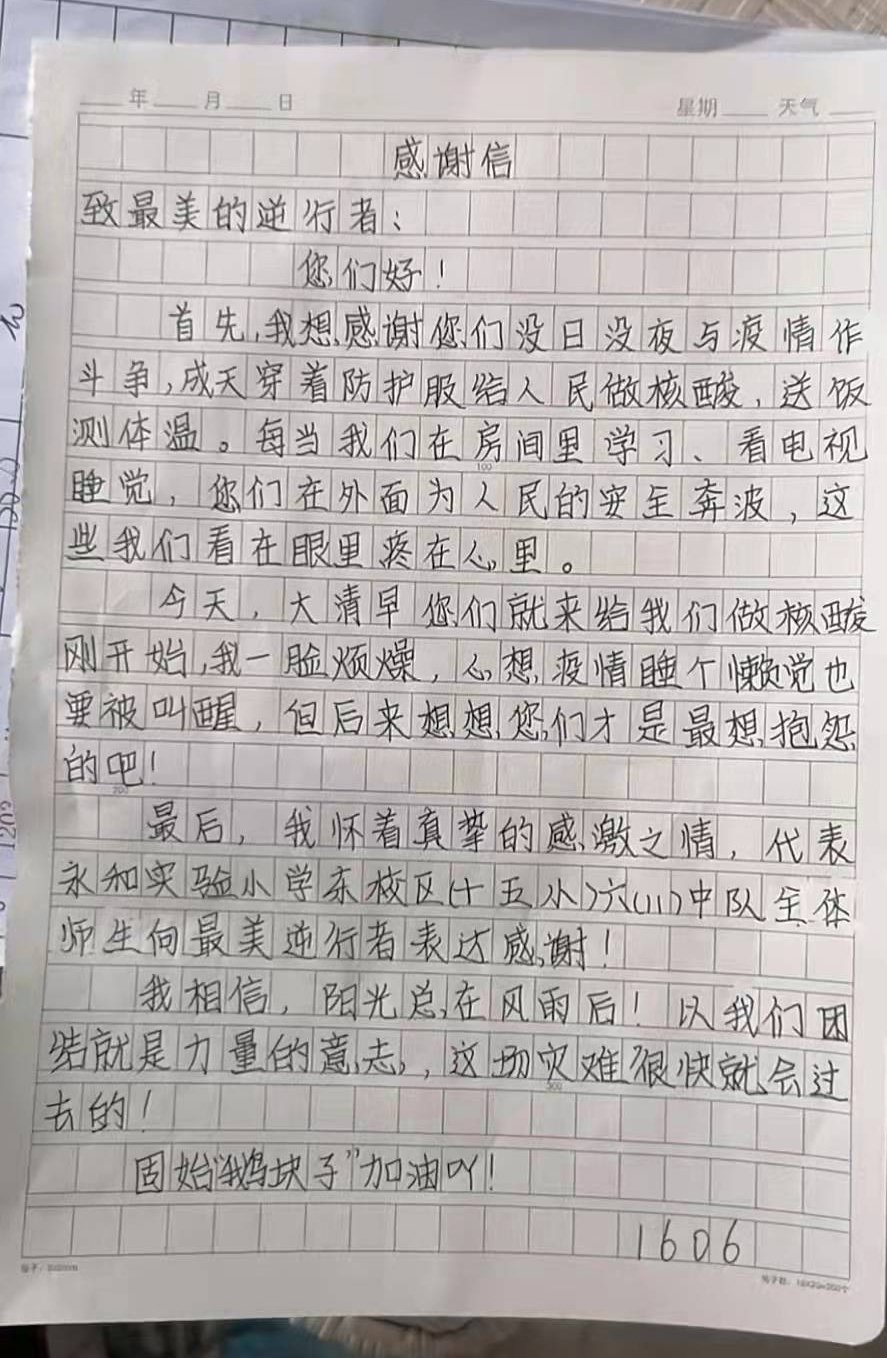 年 月 日 星期 天气
感谢信
致最美的逆行者：
您们好！
首先,我想感谢您们没日没夜与疫情作
斗争,成天穿着防护服给人民做核酸，送饭
测体温。每当我们在房间里学习、看电视
睡觉，您们在外面为人民的安全奔波，这
些我们看在眼里疼在心里。
今天，大清早您们就来给我们做核酸
刚开始,我一脸烦燥，心想疫情睡个懒觉也
要被叫醒，但后来想想您们才是最想抱怨
的吧！
最后，我怀着真挚的感激之情，代表
永和实验小学东校区(十五小)六(11)中队全体
师生向最美逆行者表达感谢！
我相信，阳光总在风雨后！以我们团
结就是力量的意志，这场灾难很快就会过
去的！
固始“鹅块子”加油吖！
1606